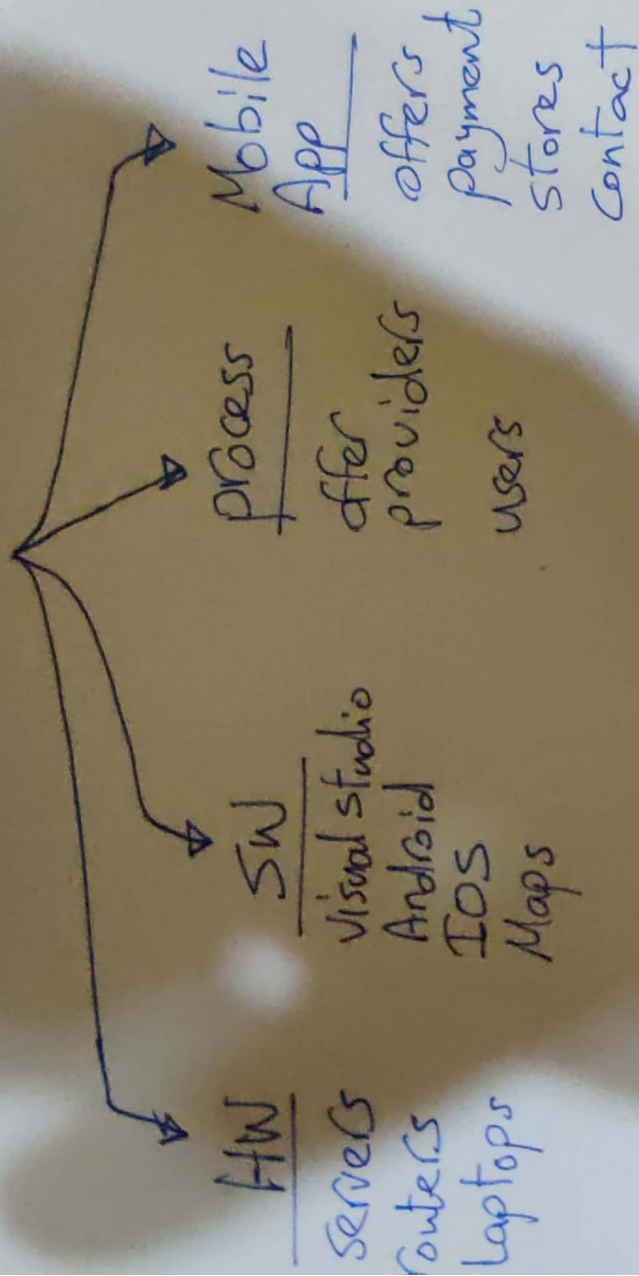 HW
servers
routers
laptops
SW
visual studio
Android
IOS
Maps
process
offer
providers
users
Mobile
App
offers
payment
stores
contact